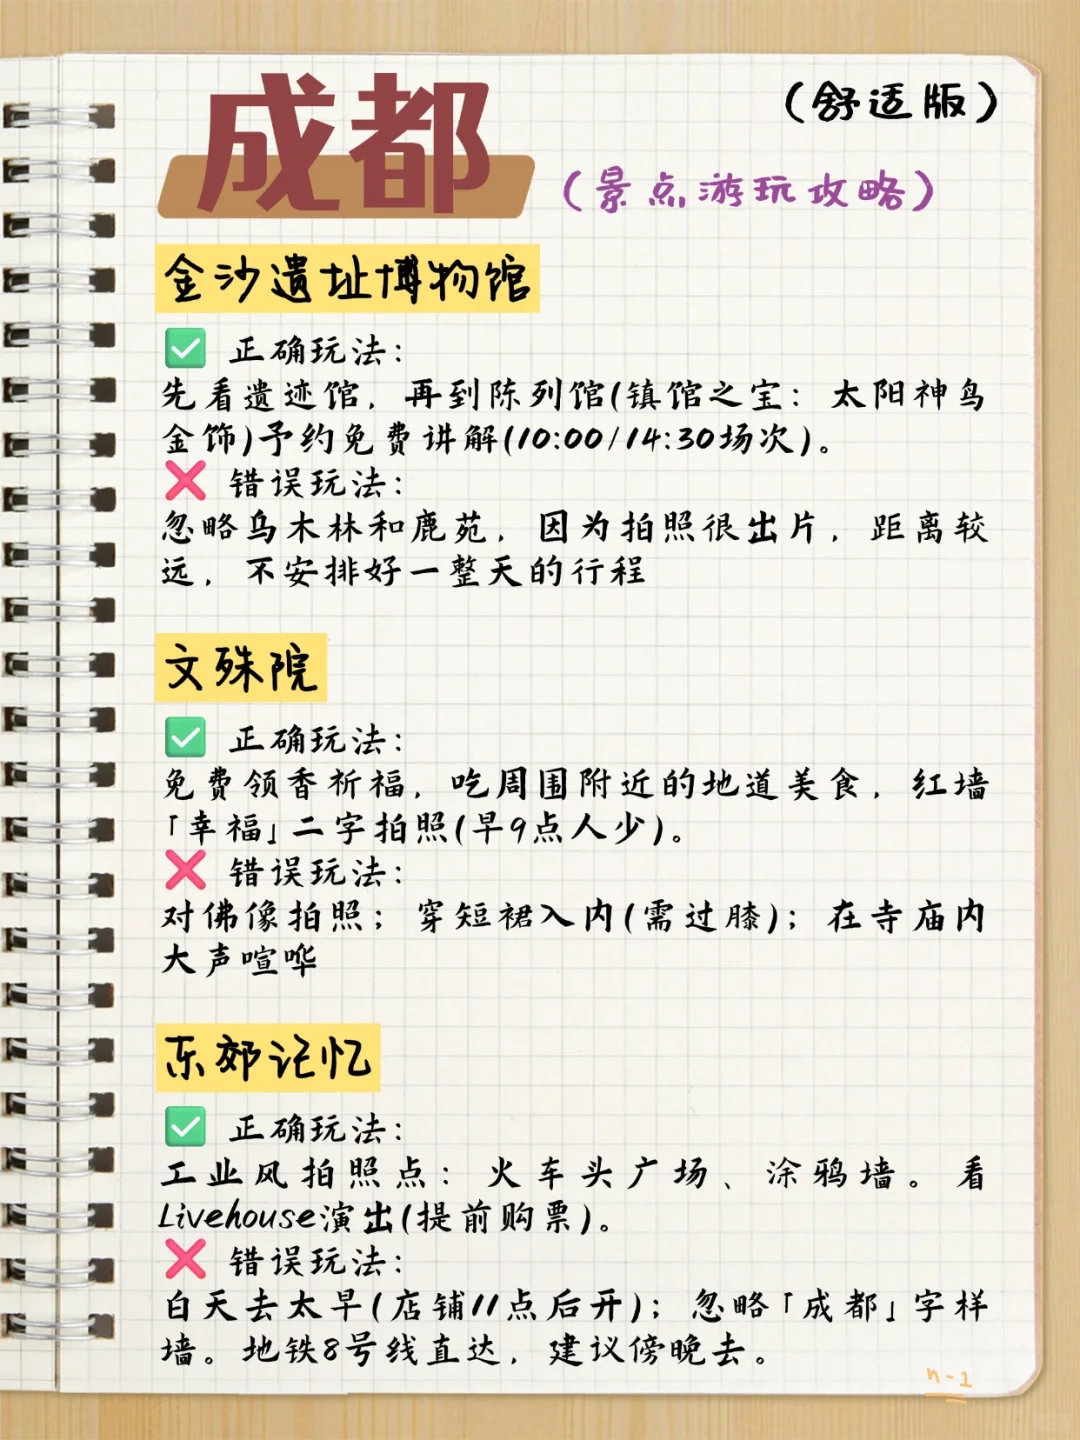 成都
（舒适版）
（景点游玩攻略）
金沙遗址博物馆
✅ 正确玩法：
先看遗迹馆，再到陈列馆(镇馆之宝：太阳神鸟
金饰)予约免费讲解(10:00/14:30场次)。
❌ 错误玩法：
忽略乌木林和鹿苑，因为拍照很出片，距离较
远，不安排好一整天的行程
文殊院
✅ 正确玩法：
免费领香祈福，吃周围附近的地道美食，红墙
「幸福」二字拍照(早9点人少)。
❌ 错误玩法：
对佛像拍照；穿短裙入内(需过膝)；在寺庙内
大声喧哗
东郊记忆
✅ 正确玩法：
工业风拍照点：火车头广场、涂鸦墙。看
Livehouse演出(提前购票)。
❌ 错误玩法：
白天去太早(店铺11点后开)；忽略「成都」字样
墙。地铁8号线直达，建议傍晚去。
n-1